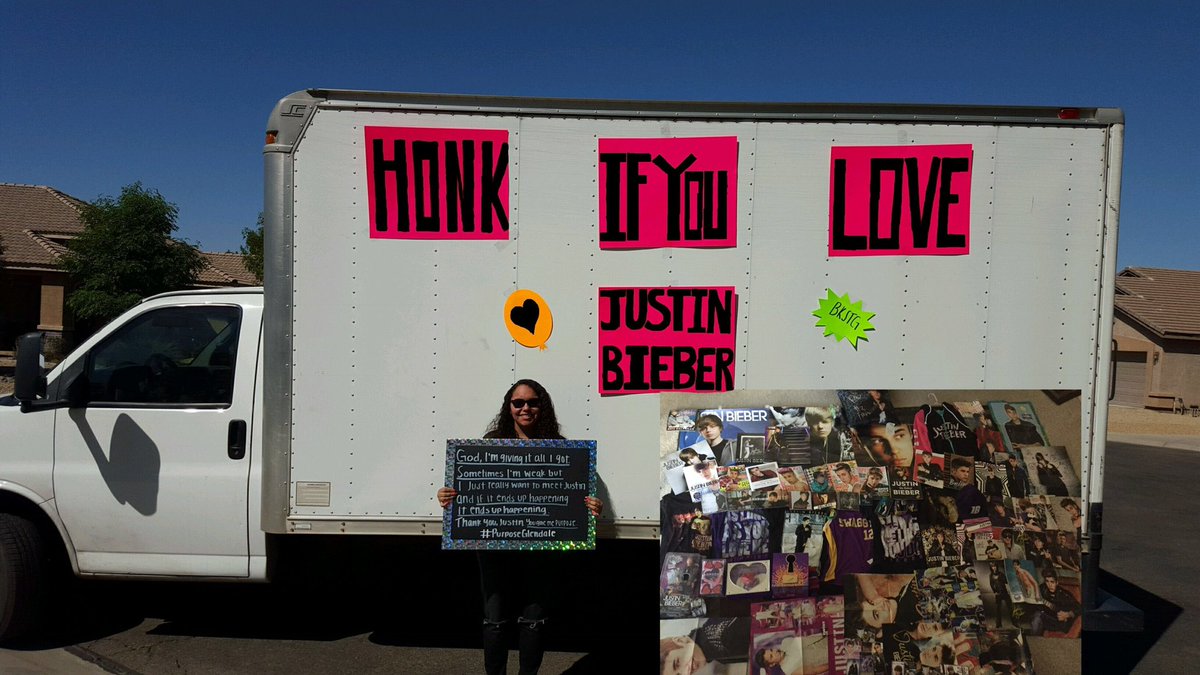 HONK
IF YOU
LOVE
JUSTIN
BIEBER
BKSTG
God, I'm giving it all I got
Sometimes I'm weak but
I Just really want to meet Justin
And if it ends up happening
It ends up happening
Thank you Justin You gave me Purpose
#PurposeGlendale
JUSTIN BIEBER
SWAGGY
12
JUSTIN
BIEBER